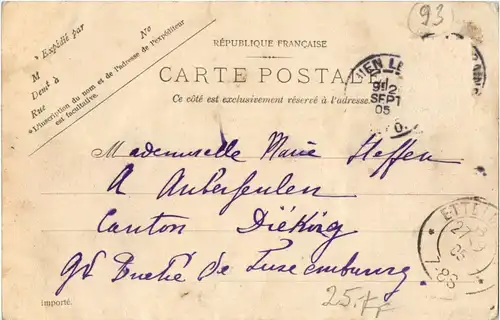 * Expédié par
No
M
Demt à
Rue
*L'inscription du nom et de l'adresse de l'expéditeur
est facultative.
(93)
RÉPUBLIQUE FRANÇAISE
CARTE POSTAL
Ce côté est exclusivement réservé à l'adresse.
SEPT
05
Mademoiselle Marie Steffen
A Anbersenlen
Canton Diékirg
Gd Duché de Luxembourg.
ETTE
05
importé.
25.